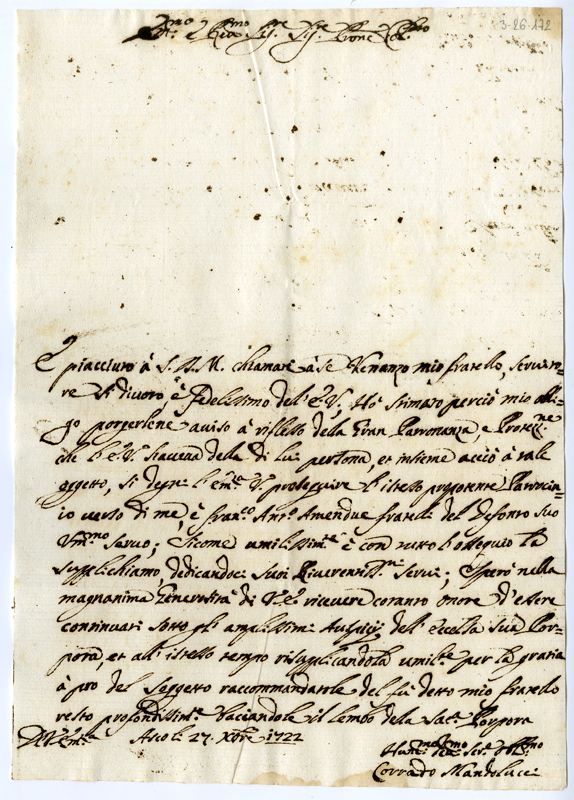 3-26-172
Em.mo e Rev.mo Sig.re Sig.re Prone Col.mo
È piacciuto à S. D. M. chiamare à se Venanzo mio fratello, servito=
re sì divoto è fedelissimo dell' E. V., Hò stimato perciò mio obli=
go porgerlene aviso à riflesso della Gran Padronanza, e Protez.ne
che l' E. V. si aveva della di lui persona, et insieme acciò à tale
oggetto, si degni l' Em.a V. proseguire l' istesso prepotente Patrocin=
io verso di me, è Fran.co Ant.o Amendue fratelli del Defonto suo
Um.mo servo; Sicome umilissim.te è con tutto l' ossequio la
supplichiamo, dedicandoci suoi Riverentiss.mi servi; Sperò nella
magnanima Generosità di V. E. ricevere cotanto onore d' essere
continuati sotto gli amplissimi Auspicij dell' eccelsa sua Por=
pora, et all' istesso tempo risupplicandola umil.te per la grazia
à pro del soggetto raccommandatole del fù detto mio fratello
resto profondissim.te baciandole il lembo della Sac.a Porpora
Di V. Em.za Ascoli 27. Xbre 1722
Hum.mo Dev.mo Ser.e Obl.mo
Corrado Mandolucci